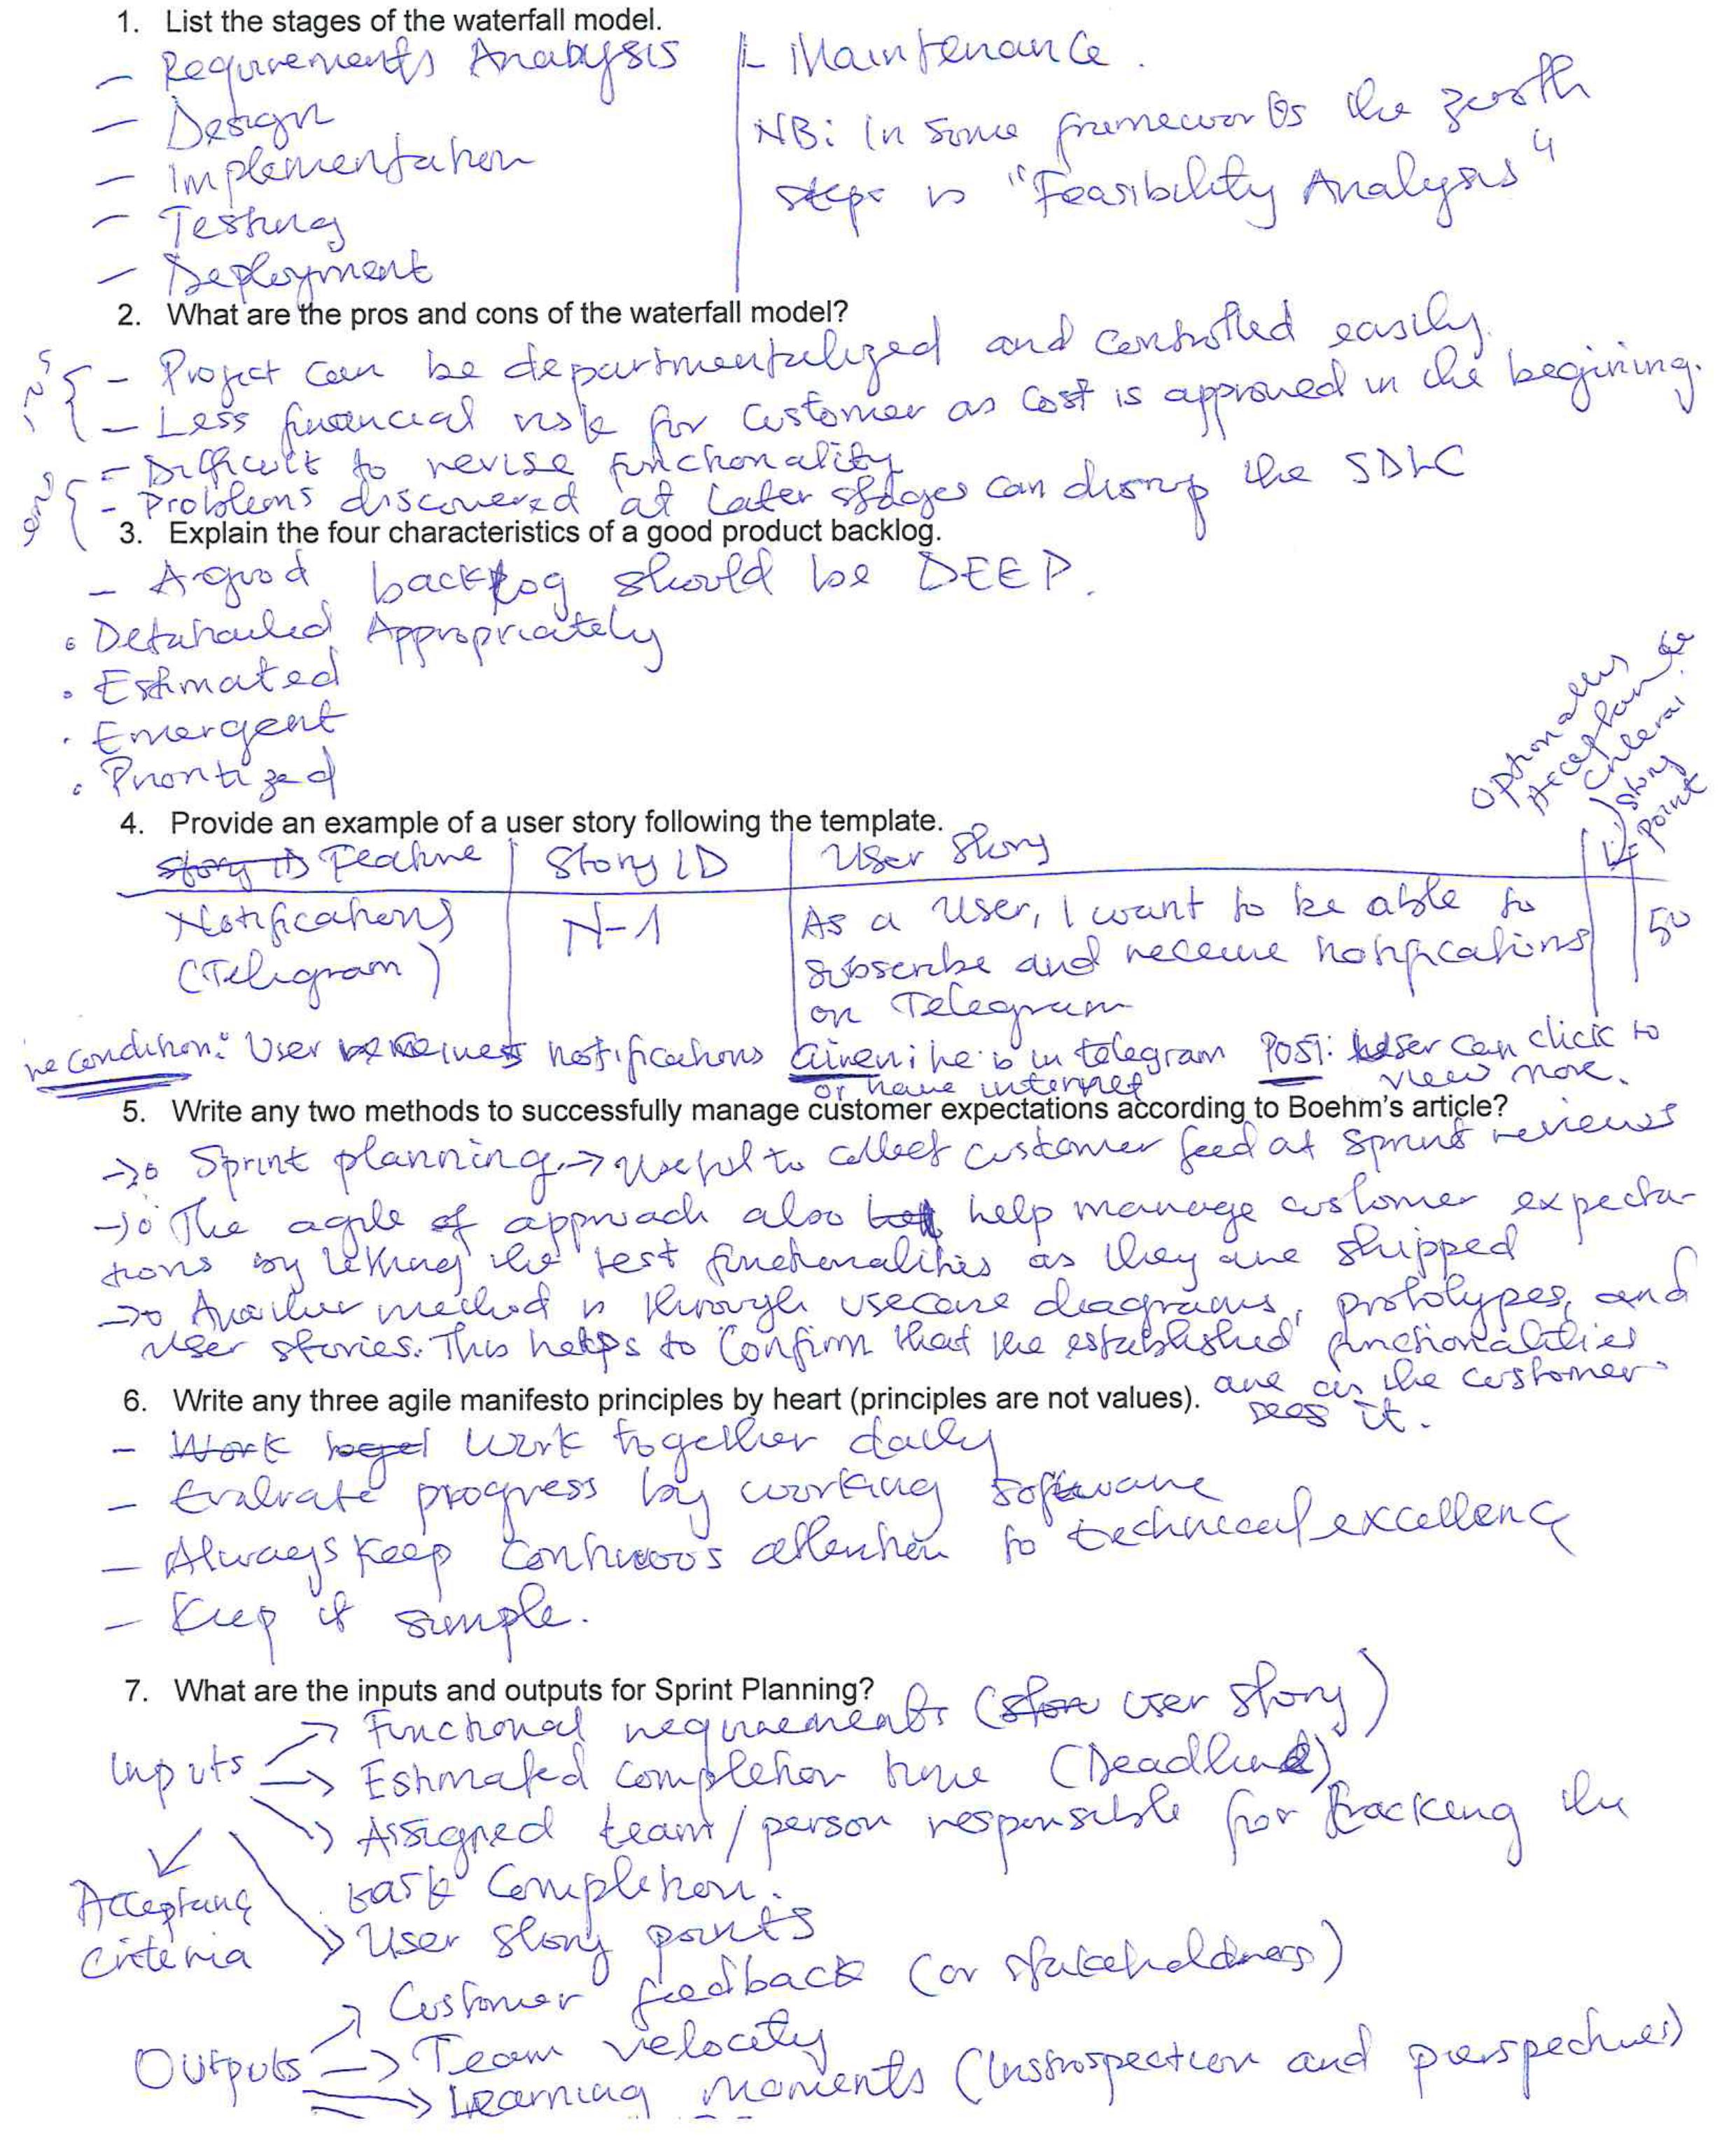 1. List the stages of the waterfall model.
- Requirements Analysis
- Design
- Implementation
- Testing
- Deployment
- Maintenance.
NB: In some frameworks the zeroth
steps is "Feasibility Analysis"
2. What are the pros and cons of the waterfall model?
- Project can be departmentalized and controlled easily.
- Less financial risk for customer as cost is approved in the begining.
- Difficult to revise functionality
- Problems discovered at later stages can disrup the SDLC
3. Explain the four characteristics of a good product backlog.
- A good backlog should be DEEP.
• Detahailed Appropriately
• Estimated
• Emergent
• Prioritized
4. Provide an example of a user story following the template.
Optionally
Acceptance
Criterai
story point
story ID Feature | Story ID | User Story
Notifications | N-1 | As a user, I want to be able to | 50
(Telegram) subscribe and receive notifications
on Telegram
condition: User notifications Given: he is in telegram POST: User can click to
or have internet view more.
5. Write any two methods to successfully manage customer expectations according to Boehm's article?
→ Sprint planning → useful to collect customer feed at sprint reviews
→ The agile of approach also help manage customer expecta-
tions by letting the test functionalities as they are shipped
→ Another method is through usecase diagrams, prototypes, and
user stories. This helps to confirm that the established functionalities
are as the customer
sees it.
6. Write any three agile manifesto principles by heart (principles are not values).
- Work work together daily
- Evaluate progress by working software
- Always keep continuous attention to technical excellence
- Keep it simple.
7. What are the inputs and outputs for Sprint Planning?
Inputs → Functional requirements (user story)
→ Estimated completion time (Deadline)
→ Assigned team/person responsible for tracking the
task completion.
→ User story points
Acceptance
Criteria
Outputs → Customer feedback (or stakeholders)
→ Team velocity
→ Learning moments (Instrospection and perspectives)